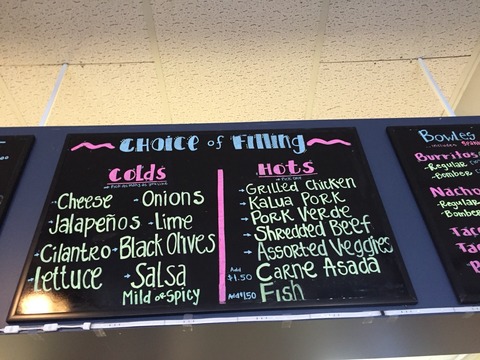 CHOICE of Filling
Colds
Pick as many as you like
Cheese
Onions
Jalapeños
Lime
Cilantro
Black Olives
Lettuce
Salsa
Mild or Spicy
Hots
Pick One
Grilled Chicken
Kalua Pork
Pork Verde
Shredded Beef
Assorted Veggies
Add $1.50 Carne Asada
Add $1.50 Fish
Bowls
includes
Burritos
Regular
Bomber
Nacho
Regular
Bomber
Tac
Tac